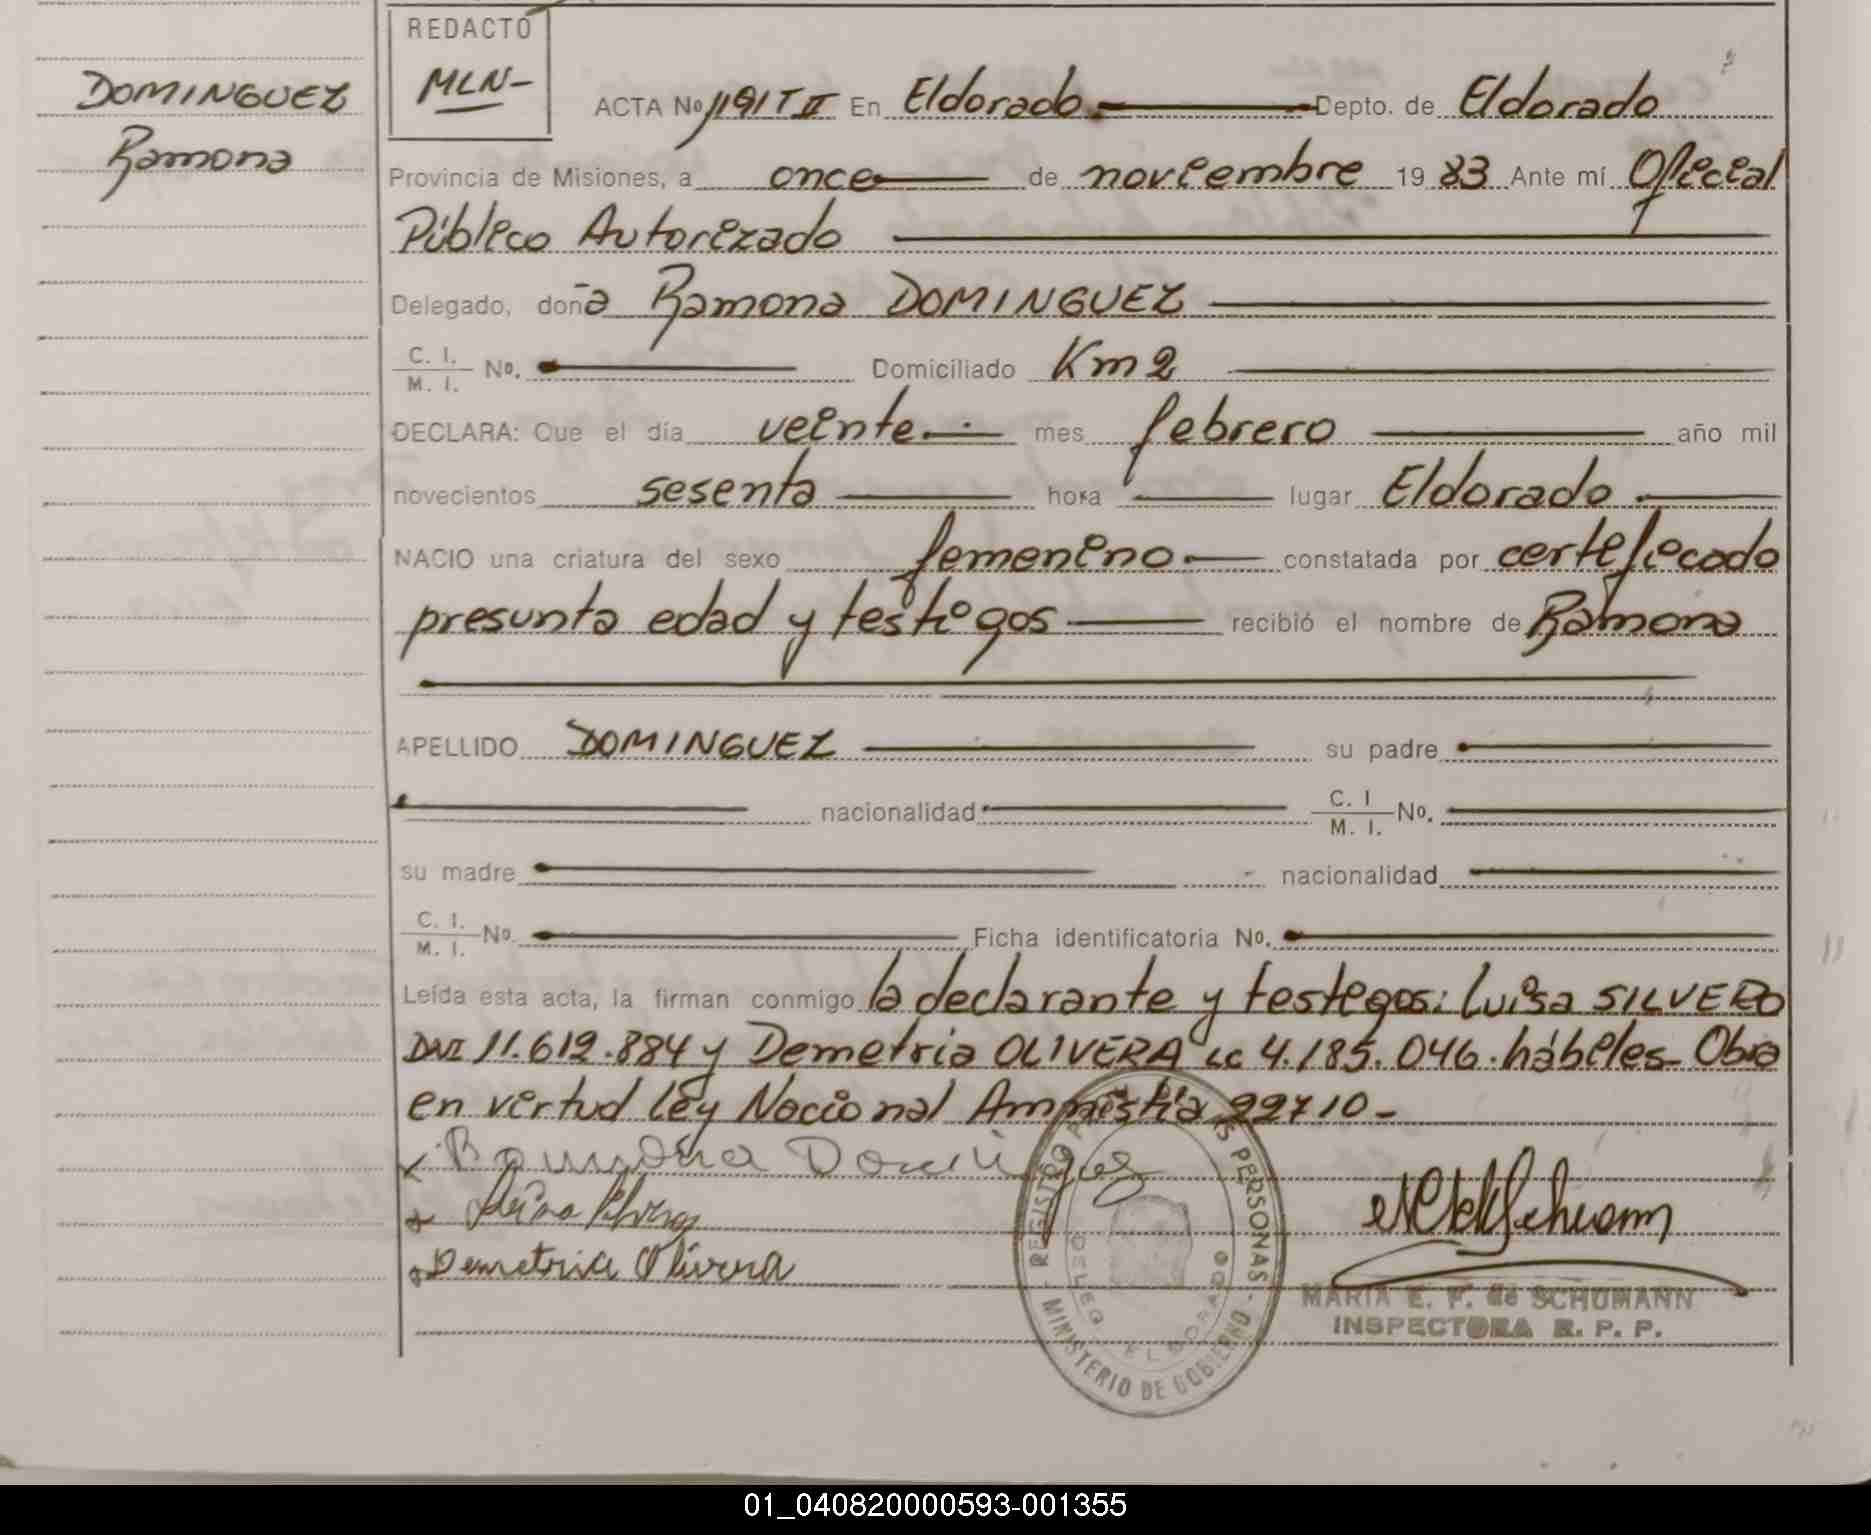 DOMINGUEZ
Ramona
REDACTO
MLN-
ACTA No 1191 T II En Eldorado Depto. de Eldorado
Provincia de Misiones, a once de noviembre 1983 Ante mí Oficial
Público Autorizado
Delegado, doña Ramona DOMINGUEZ
C. I. / M. I. No. Domiciliado Km 2
DECLARA: Que el día veinte mes febrero año mil
novecientos sesenta hora lugar Eldorado
NACIO una criatura del sexo femenino constatada por certificado
presunta edad y testigos recibió el nombre de Ramona
APELLIDO DOMINGUEZ su padre
nacionalidad C. I / M. I. No.
su madre nacionalidad
C. I. / M. I. No. Ficha identificatoria No.
Leída esta acta, la firman conmigo la declarante y testigos: Luisa SILVERO
DNI 11.612.884 y Demetria OLIVERA LC 4.185.046. hábiles- Obra
en virtud ley Nacional Amnistía 22710-
Ramona Domínguez
Demetria Olivera
REGISTRO PERSONAS
DELEG. ELDORADO
MINISTERIO DE GOBIERNO
MARIA E. F. de SCHUMANN
INSPECTORA R. P. P.
01_040820000593-001355